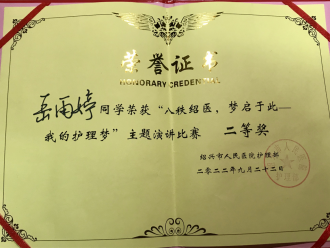 荣誉证书
HONORARY CREDENTIAL
岳雨婷同学荣获“八秩绍医，梦启于此—
我的护理梦”主题演讲比赛 二等奖
绍兴市人民医院护理部
二零二二年九月二十二日